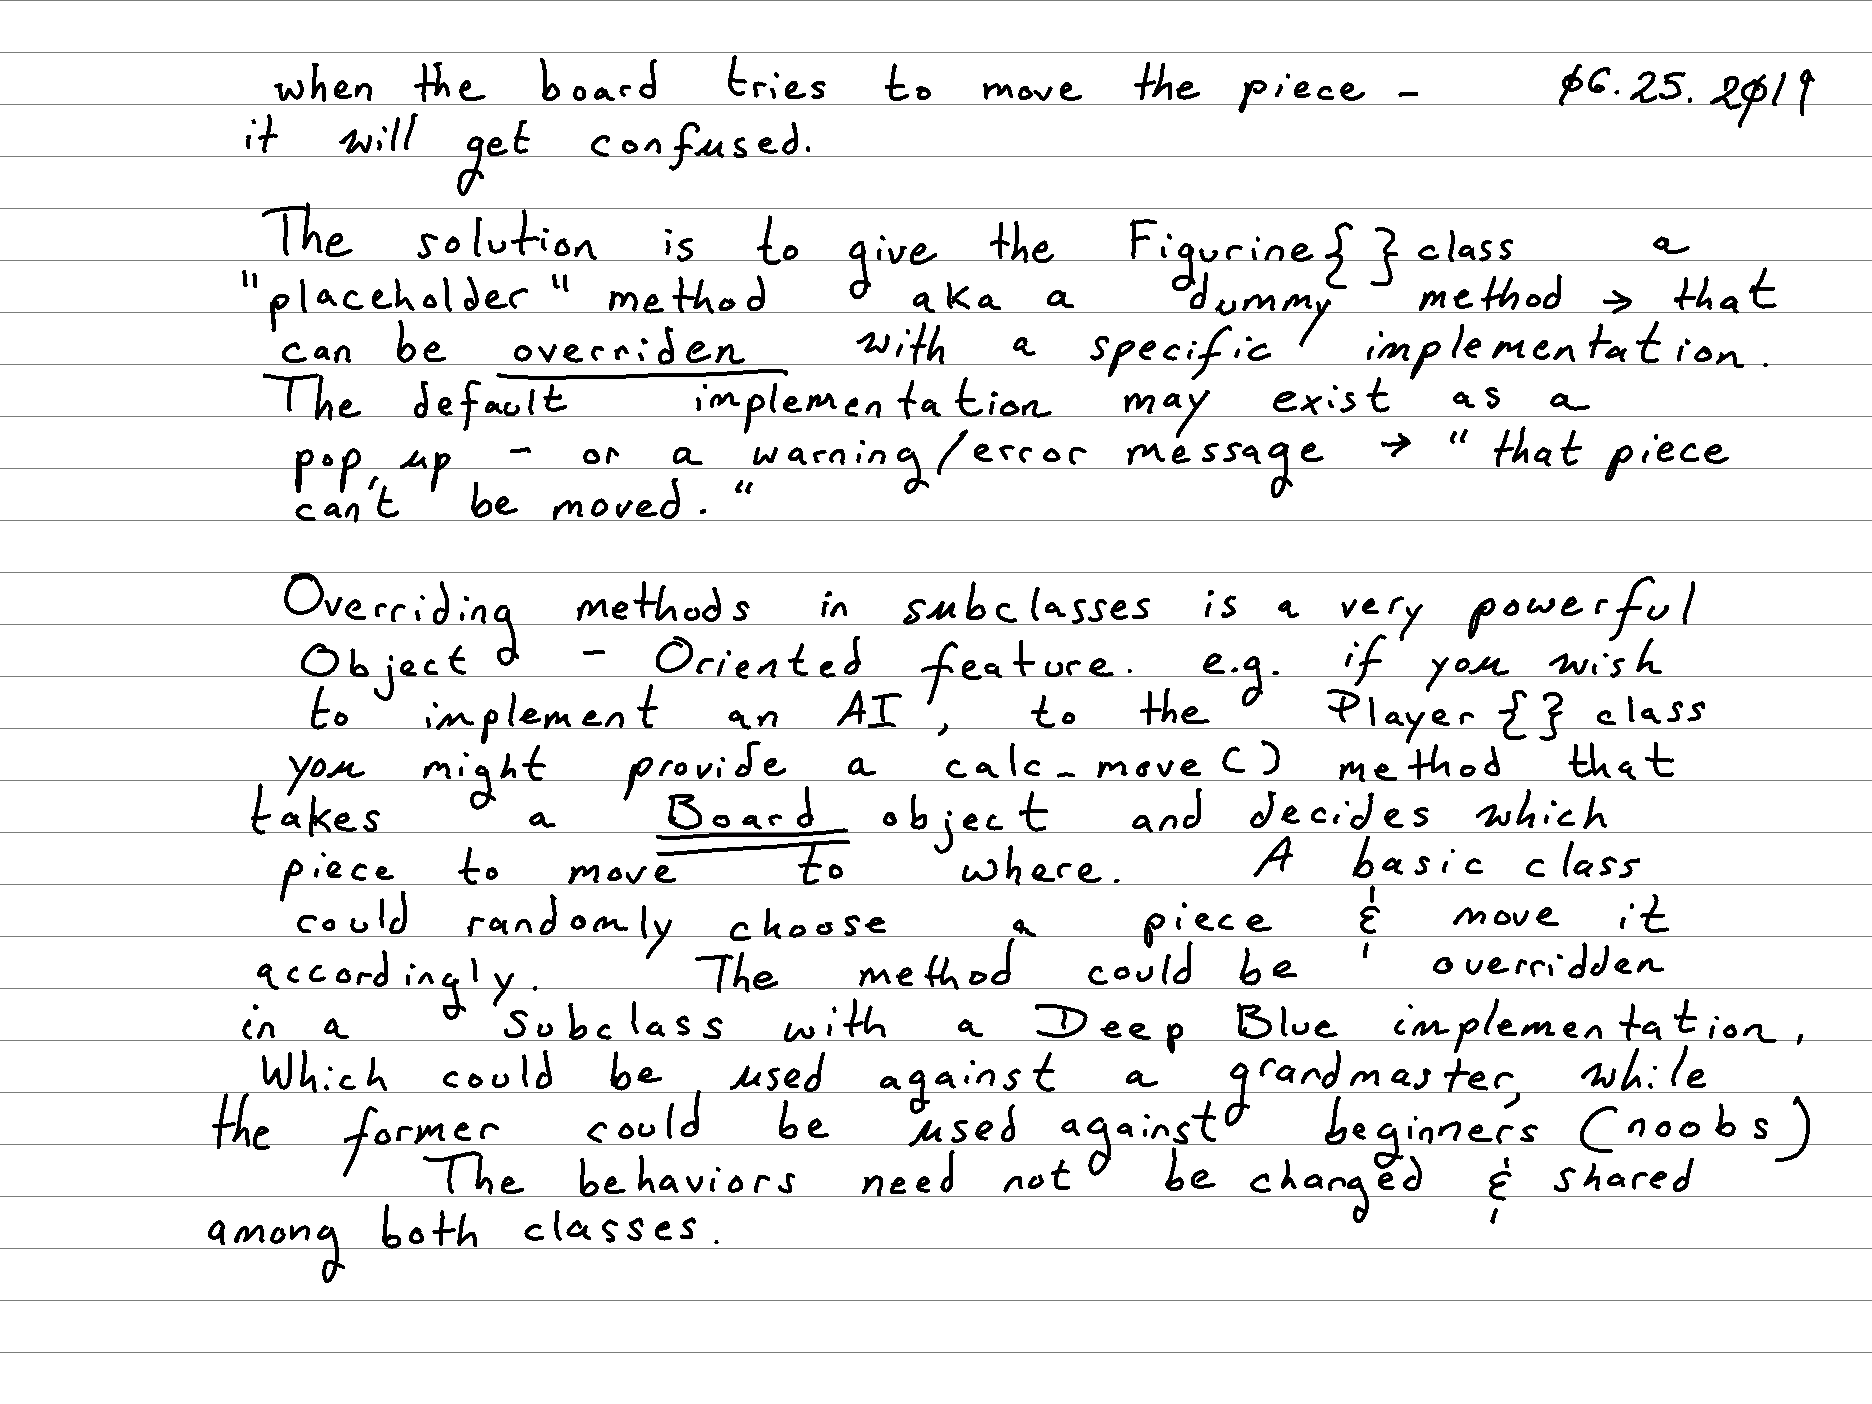 when the board tries to move the piece - 06.25.2019
it will get confused.
The solution is to give the Figurine{ } class a
"placeholder" method aka a dummy method → that
can be overriden with a specific implementation.
The default implementation may exist as a
pop, up - or a warning/error message → "that piece
can't be moved."
Overriding methods in subclasses is a very powerful
Object - Oriented feature. e.g. if you wish
to implement an AI, to the Player{} class
you might provide a calc_move() method that
takes a Board object and decides which
piece to move to where. A basic class
could randomly choose a piece & move it
accordingly. The method could be overridden
in a Subclass with a Deep Blue implementation,
Which could be used against a grandmaster, while
the former could be used against beginners (noobs)
The behaviors need not be changed & shared
among both classes.